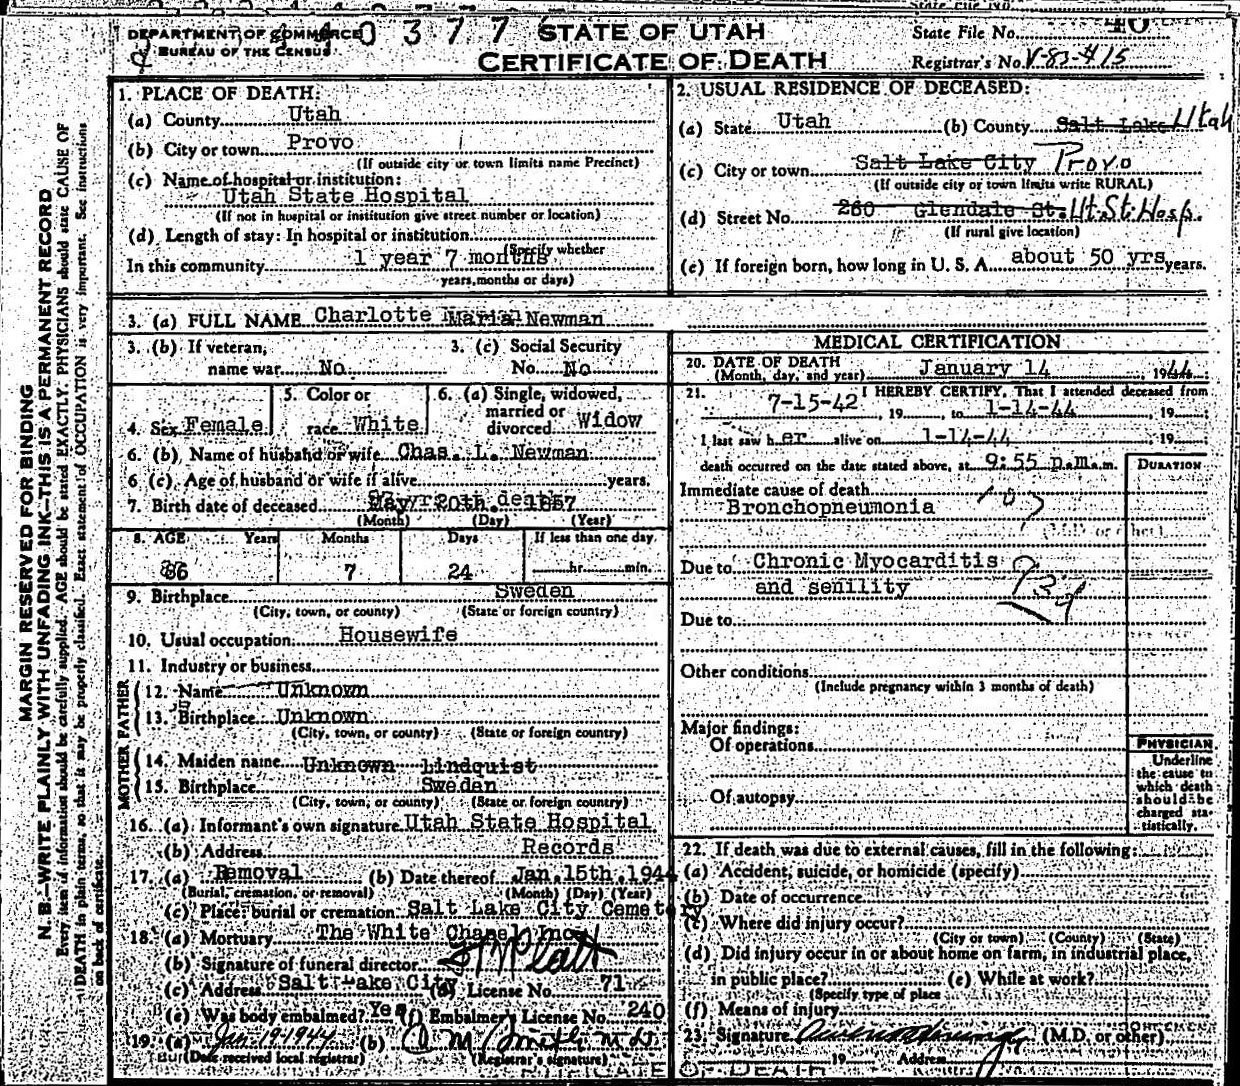 DEPARTMENT OF COMMERCE
BUREAU OF THE CENSUS
0377
STATE OF UTAH
CERTIFICATE OF DEATH
State File No. 40
Registrar's No. V-83-415
MARGIN RESERVED FOR BINDING
N. B.—WRITE PLAINLY WITH UNFADING INK—THIS IS A PERMANENT RECORD
Every item of information should be carefully supplied. AGE should be stated EXACTLY. PHYSICIANS should state CAUSE OF
DEATH in plain terms, so that it may be properly classified. Exact statement of OCCUPATION is very important. See instructions
on back of certificate.
1. PLACE OF DEATH:
(a) County Utah
(b) City or town Provo
(If outside city or town limits name Precinct)
(c) Name of hospital or institution:
Utah State Hospital
(If not in hospital or institution give street number or location)
(d) Length of stay: In hospital or institution
(Specify whether
In this community 1 year 7 months
years, months or days)
2. USUAL RESIDENCE OF DECEASED:
(a) State Utah (b) County Salt Lake Utah
(c) City or town Salt Lake City Provo
(If outside city or town limits write RURAL)
(d) Street No. 260 Glendale St. Ut. St. Hosp.
(If rural give location)
(e) If foreign born, how long in U. S. A. about 50 yrs years.
3. (a) FULL NAME Charlotte Maria Newman
3. (b) If veteran, name war No
3. (c) Social Security No. No
4. Sex Female
5. Color or race White
6. (a) Single, widowed, married or divorced Widow
6. (b) Name of husband or wife Chas. L. Newman
6 (c). Age of husband or wife if alive years.
7. Birth date of deceased May 20th 1857
(Month) (Day) (Year)
8. AGE Years Months Days If less than one day
86 7 24 hr. min.
9. Birthplace Sweden
(City, town, or county) (State or foreign country)
10. Usual occupation Housewife
11. Industry or business
FATHER
12. Name Unknown
13. Birthplace Unknown
(City, town, or county) (State or foreign country)
MOTHER
14. Maiden name Unknown Lindquist
15. Birthplace Sweden
(City, town, or county) (State or foreign country)
16. (a) Informant's own signature Utah State Hospital
(b) Address Records
17. (a) Removal (b) Date thereof Jan. 15th 1944
(Burial, cremation, or removal) (Month) (Day) (Year)
(c) Place: burial or cremation Salt Lake City Cemetery
18. (a) Mortuary The White Chapel Inc.
(b) Signature of funeral director
(c) Address Salt Lake City (d) License No. 71
(e) Was body embalmed? Yes (f) Embalmer's License No. 240
19. (a) Jan-19-1944 (b) O M Smith M.D.
(Date received local registrar) (Registrar's signature)
MEDICAL CERTIFICATION
20. DATE OF DEATH January 14, 1944
(Month, day, and year)
21. I HEREBY CERTIFY, That I attended deceased from
7-15-42, 19 to 1-14-44, 19
I last saw her alive on 1-14-44, 19
death occurred on the date stated above, at 9:55 p.m. m.
DURATION
Immediate cause of death 107
Bronchopneumonia
Due to Chronic Myocarditis
and senility
Due to
Other conditions
(Include pregnancy within 3 months of death)
Major findings:
Of operations
Of autopsy
PHYSICIAN
Underline
the cause to
which death
should be
charged sta-
tistically.
22. If death was due to external causes, fill in the following:
(a) Accident, suicide, or homicide (specify)
(b) Date of occurrence
(c) Where did injury occur?
(City or town) (County) (State)
(d) Did injury occur in or about home on farm, in industrial place,
in public place? (e) While at work?
(Specify type of place
(f) Means of injury
23. Signature (M.D. or other)
19 Address
CERTIFICATE OF DEATH